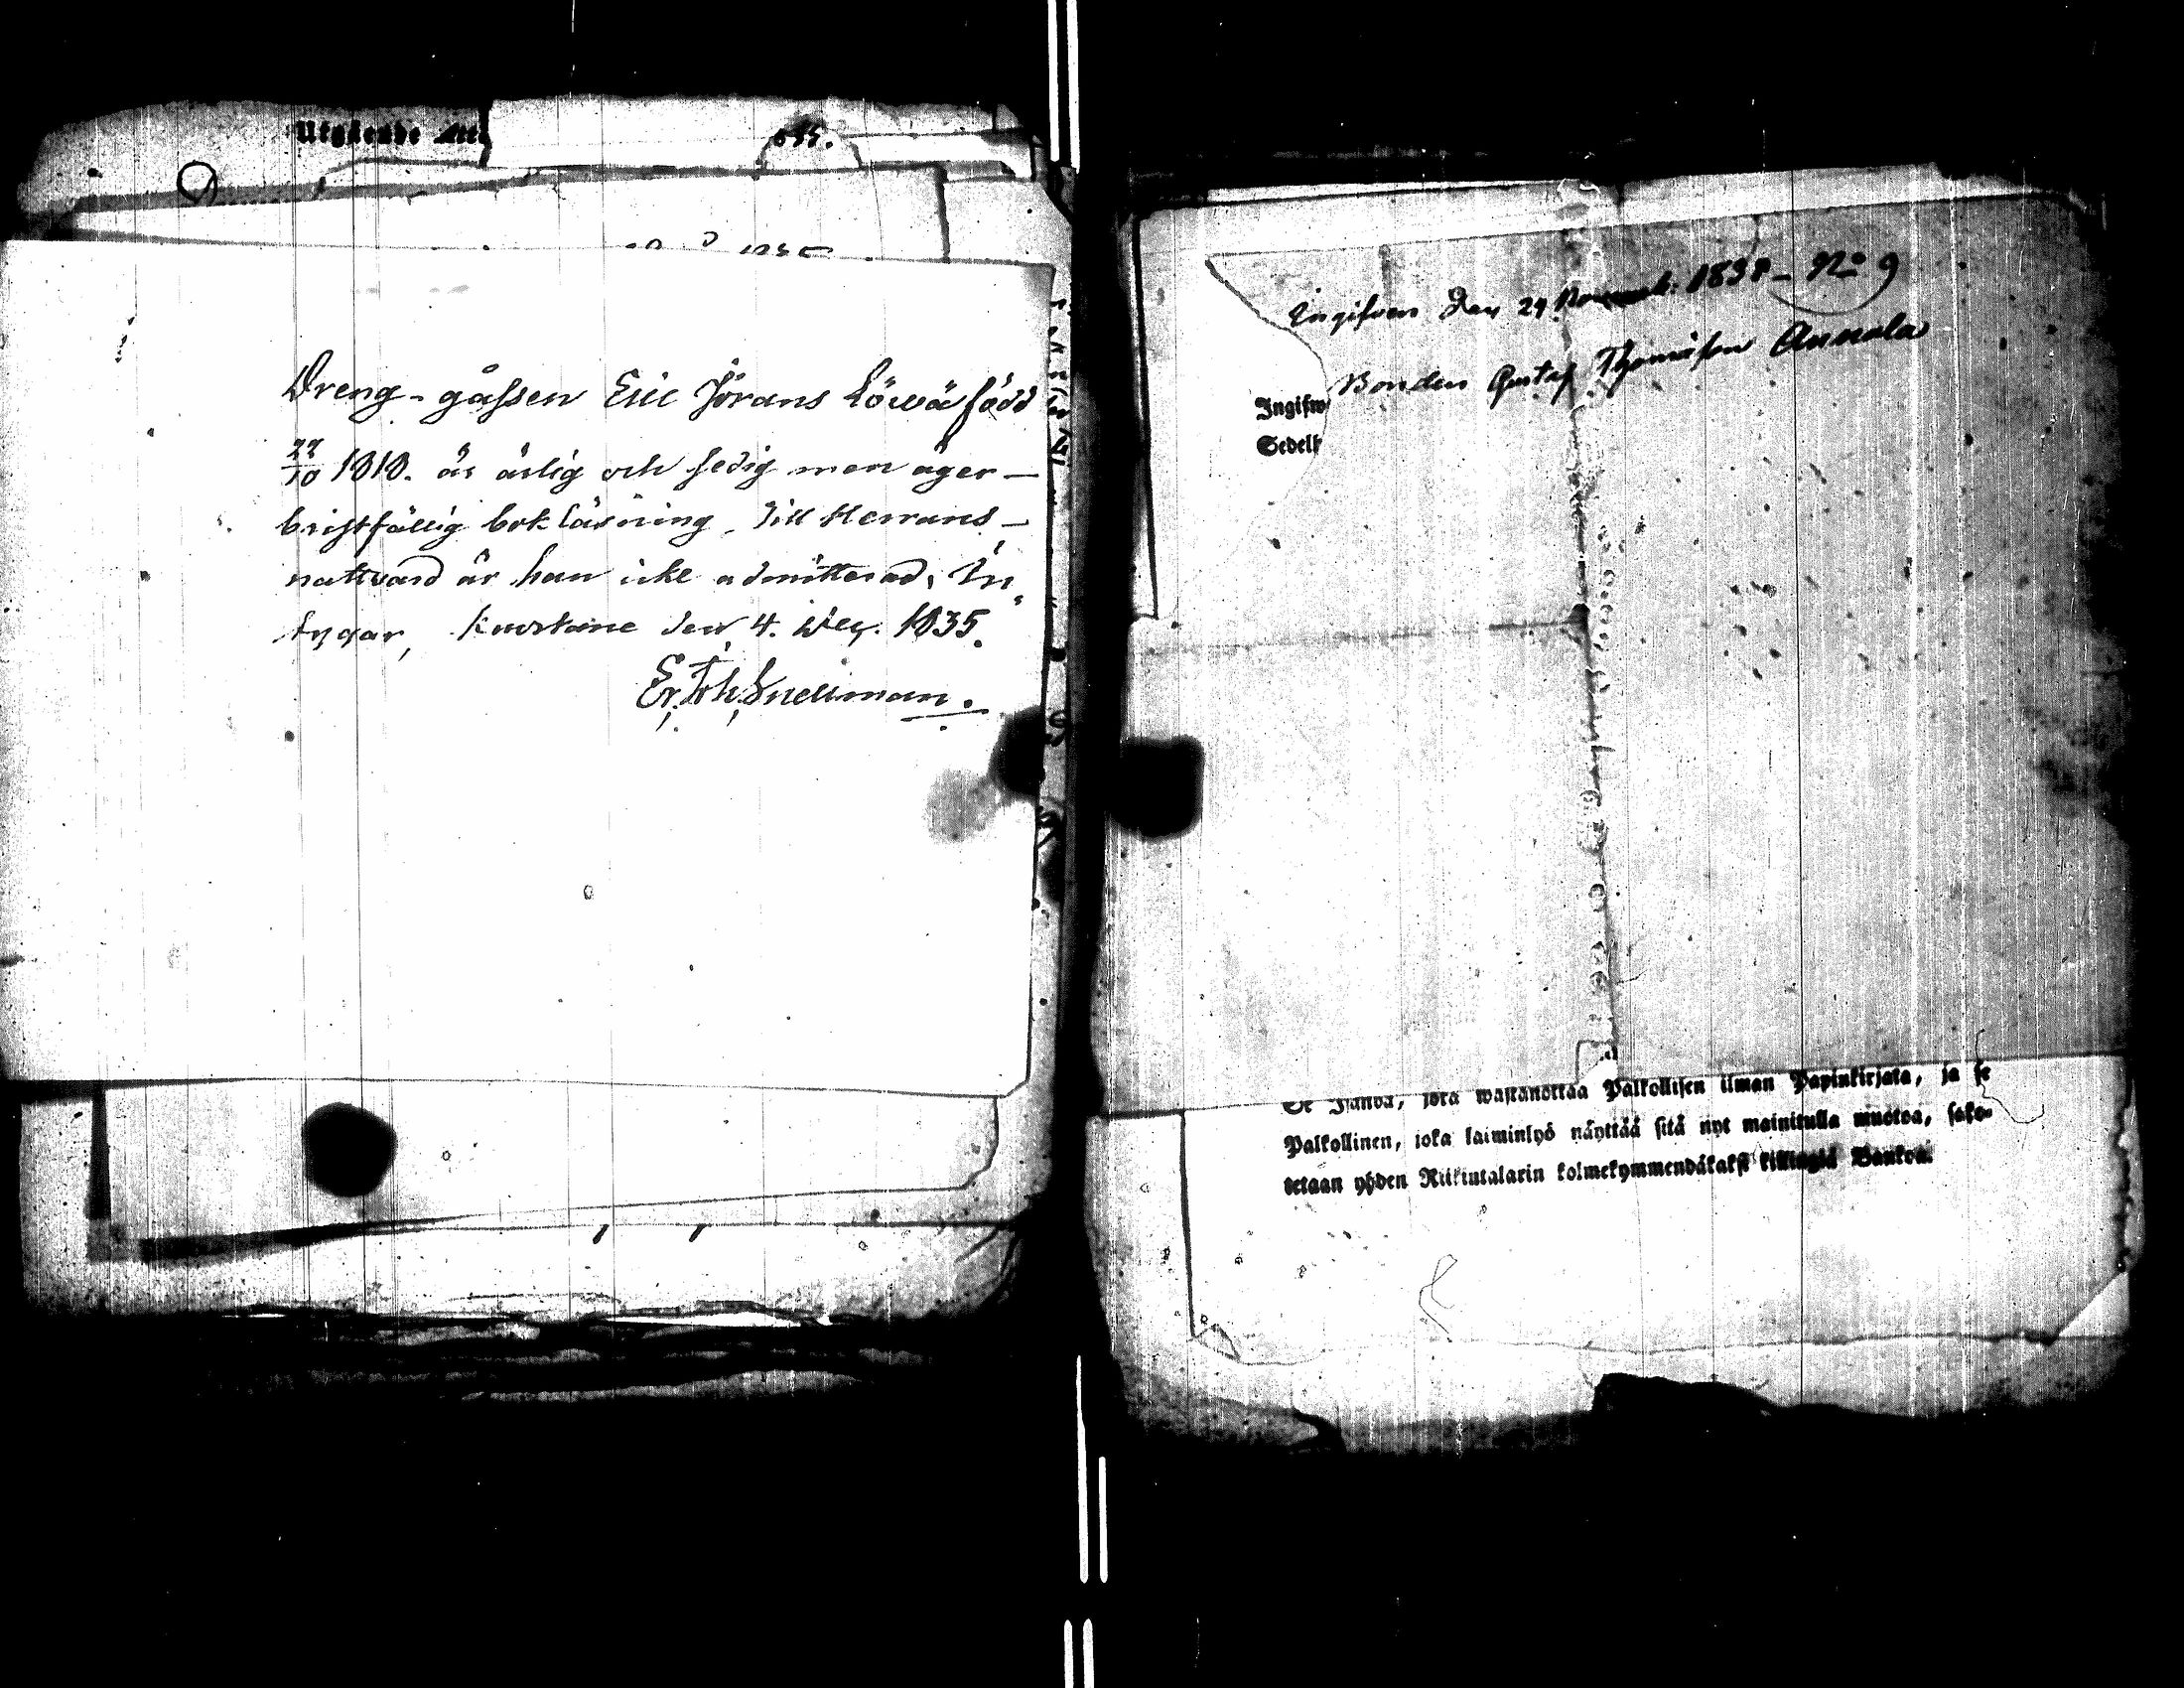 Utgående Att
Dreng-gåssen Eric Jörans Löwä född
22/10 1818. är ärlig och sedig men äger
bristfällig bokläsning. Till Herrans
nattvard är han icke admitterad, In„
tygar, Kuortane den 4. Dec. 1835.
Er. Joh. Snellman.
Ingifven den 29 Novemb: 1838 - No 9
Bonden Gustaf Thomasson Annala
Ingifw
Sedelt
Se Isändä, joka wastanottaa Palkollisen ilman Papinkirjata, ja se
Palkollinen, joka laiminlyö näyttää sitä nyt mainitulla muotoa, sako-
tetaan yhden Riikintalarin kolmekymmendäkaksi killingiä Bankoa.